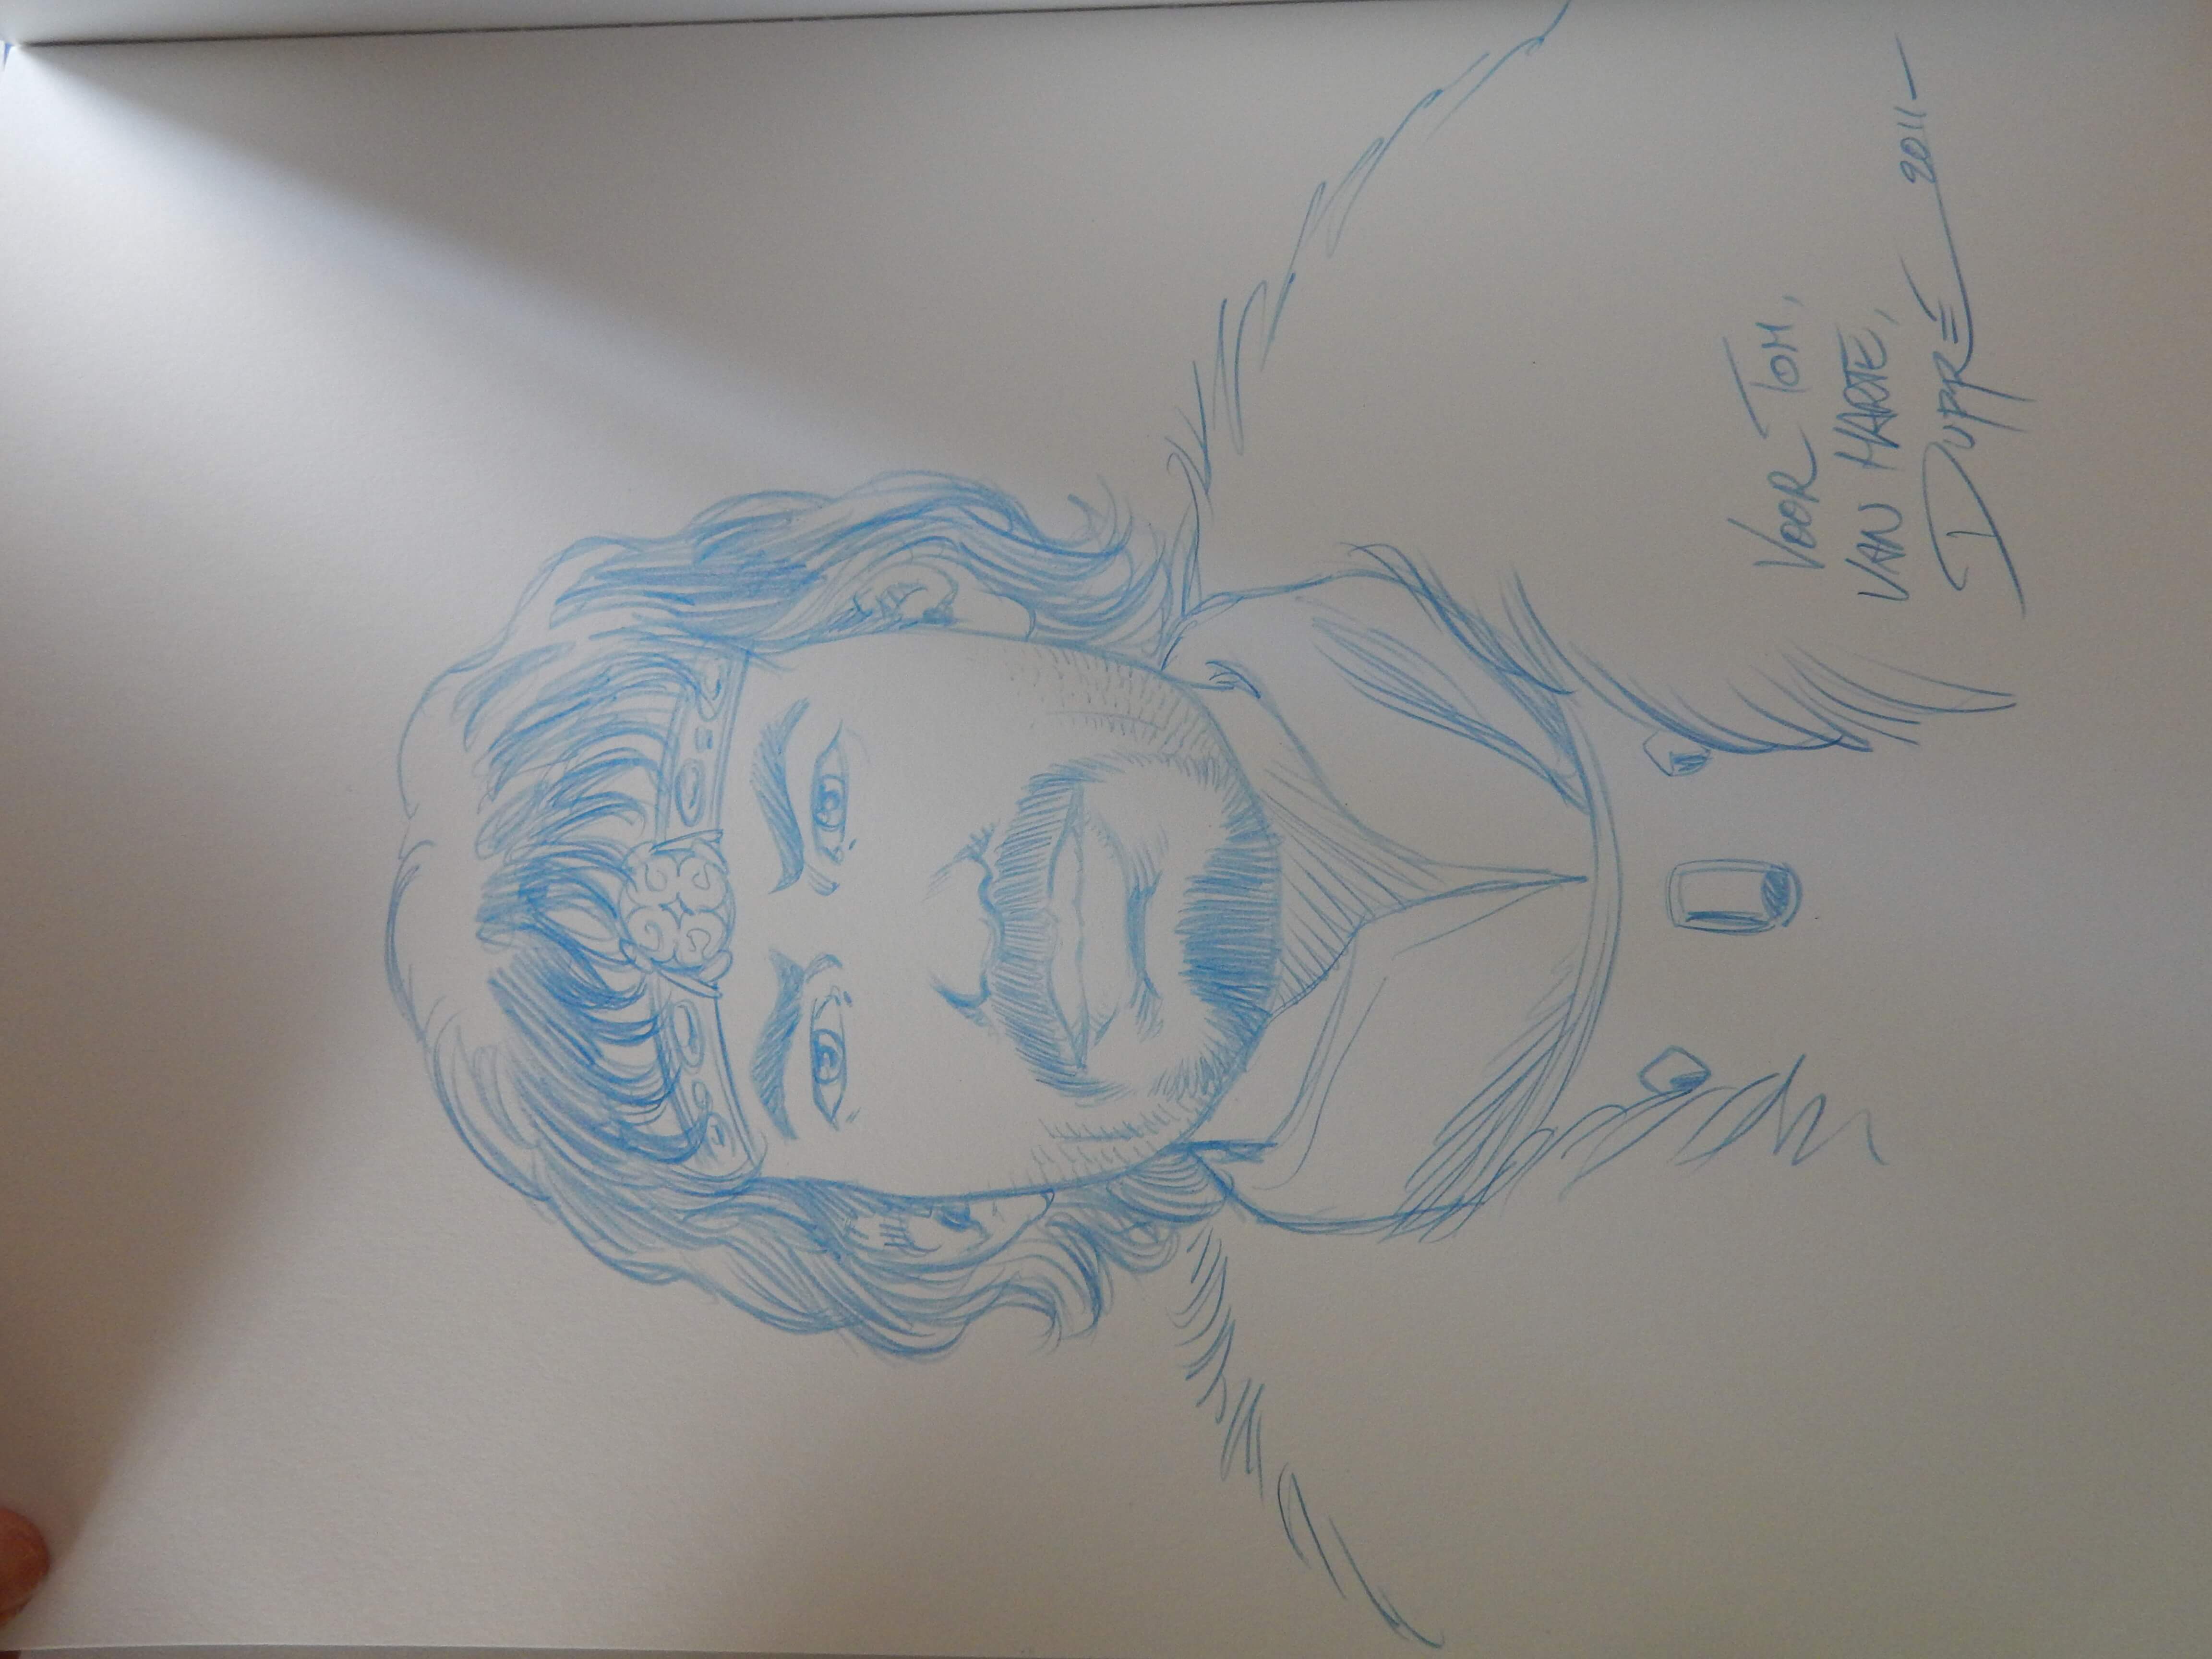 VOOR TOM,
VAN HARTE,
DUPRÉ 2011-